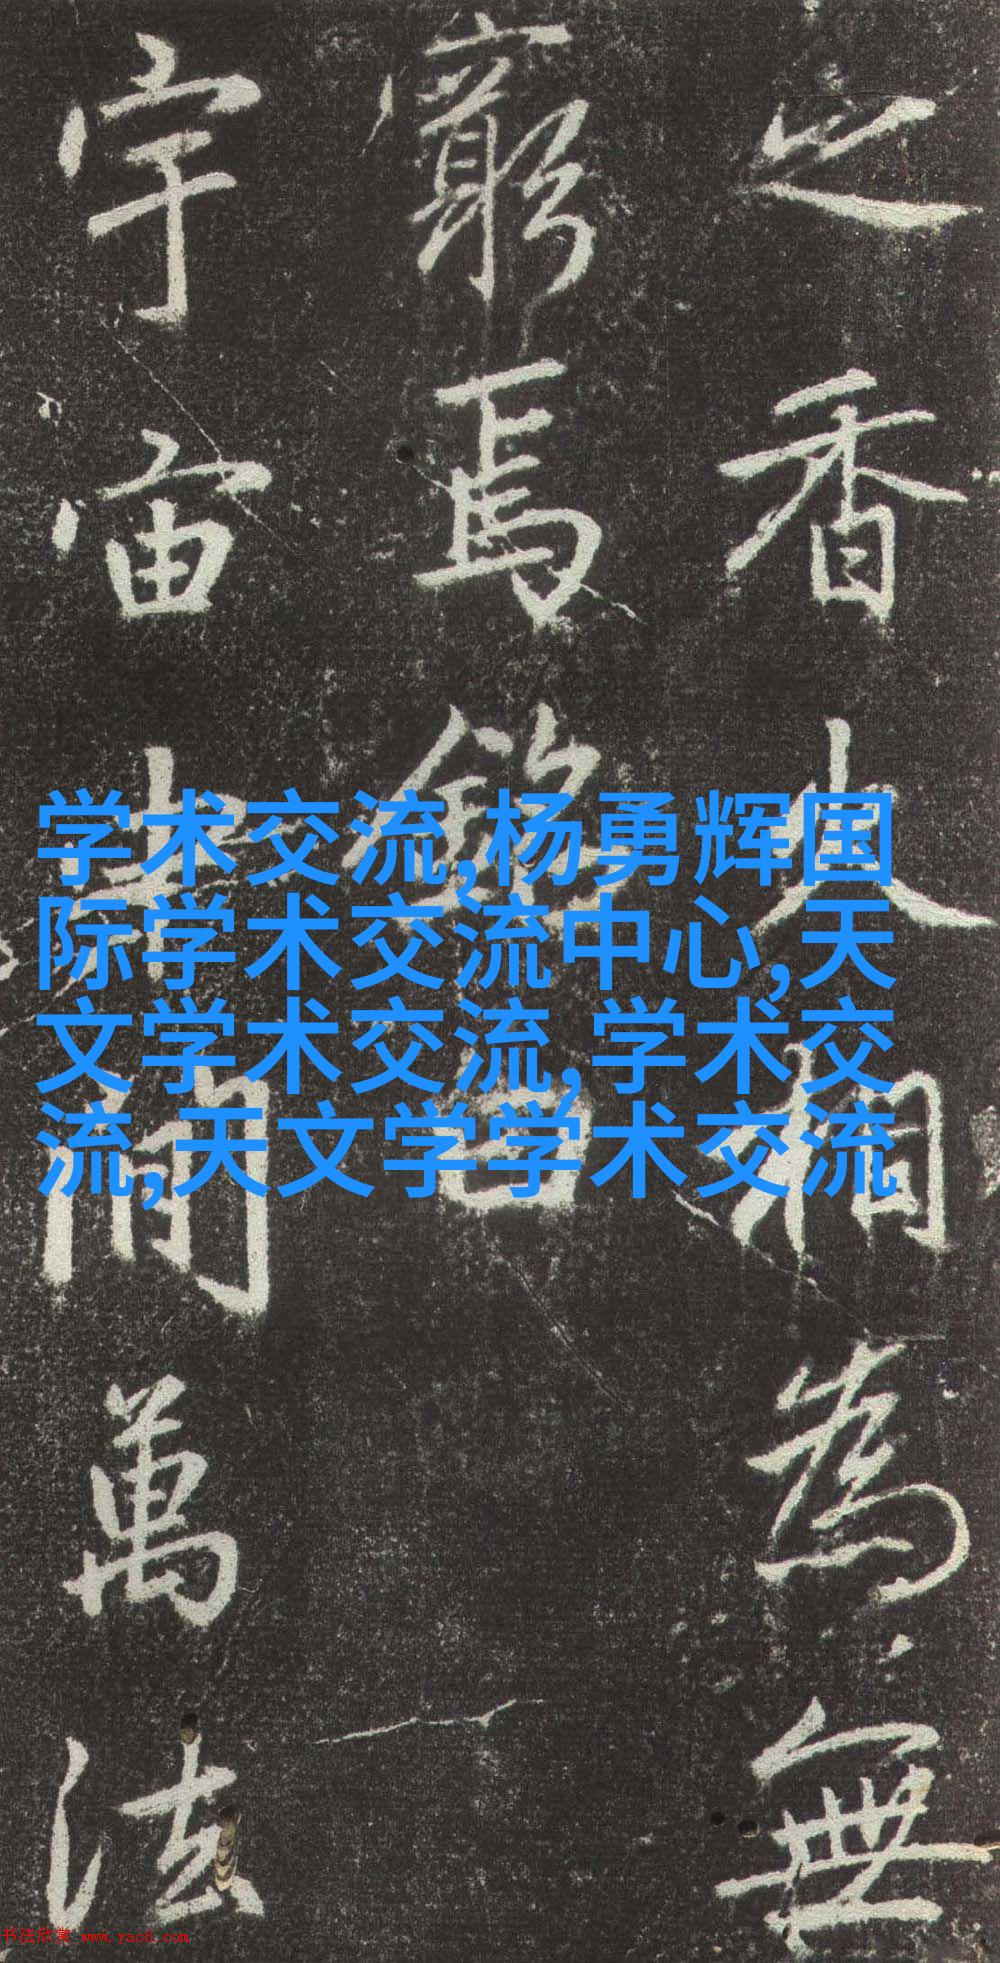 之香大相為無
窮焉銘曰
宇宙之間萬法
学术交流,杨勇辉国
际学术交流中心,天
文学术交流,学术交
流,天文学学术交流
书法欣赏 www.yac8.com